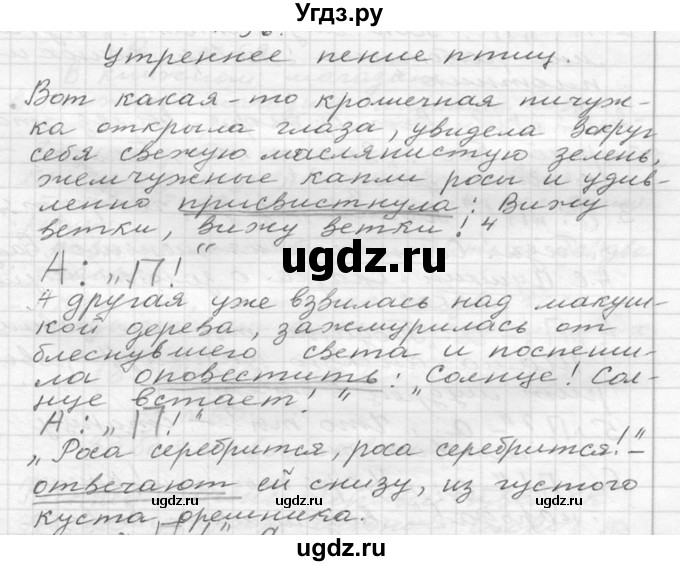 Угдз.ру
Утреннее пение птиц.
Вот какая-то крошечная пичуж-
ка открыла глаза, увидела вокруг
себя свежую маслянистую зелень,
жемчужные капли росы и удив-
ленно присвистнула: Вижу
ветки, вижу ветки!"
А: „П!“
ugdz.ru
А другая уже взвилась над макуш-
кой дерева, зажмурилась от
блеснувшего света и поспеши-
ла оповестить: „Солнце! Сол-
нце встает!"
А: „П!"
„Роса серебрится, роса серебрится!"–
отвечают ей снизу, из густого
ugdz.ru ugdz.ru
куста орешника.
ugdz.ru